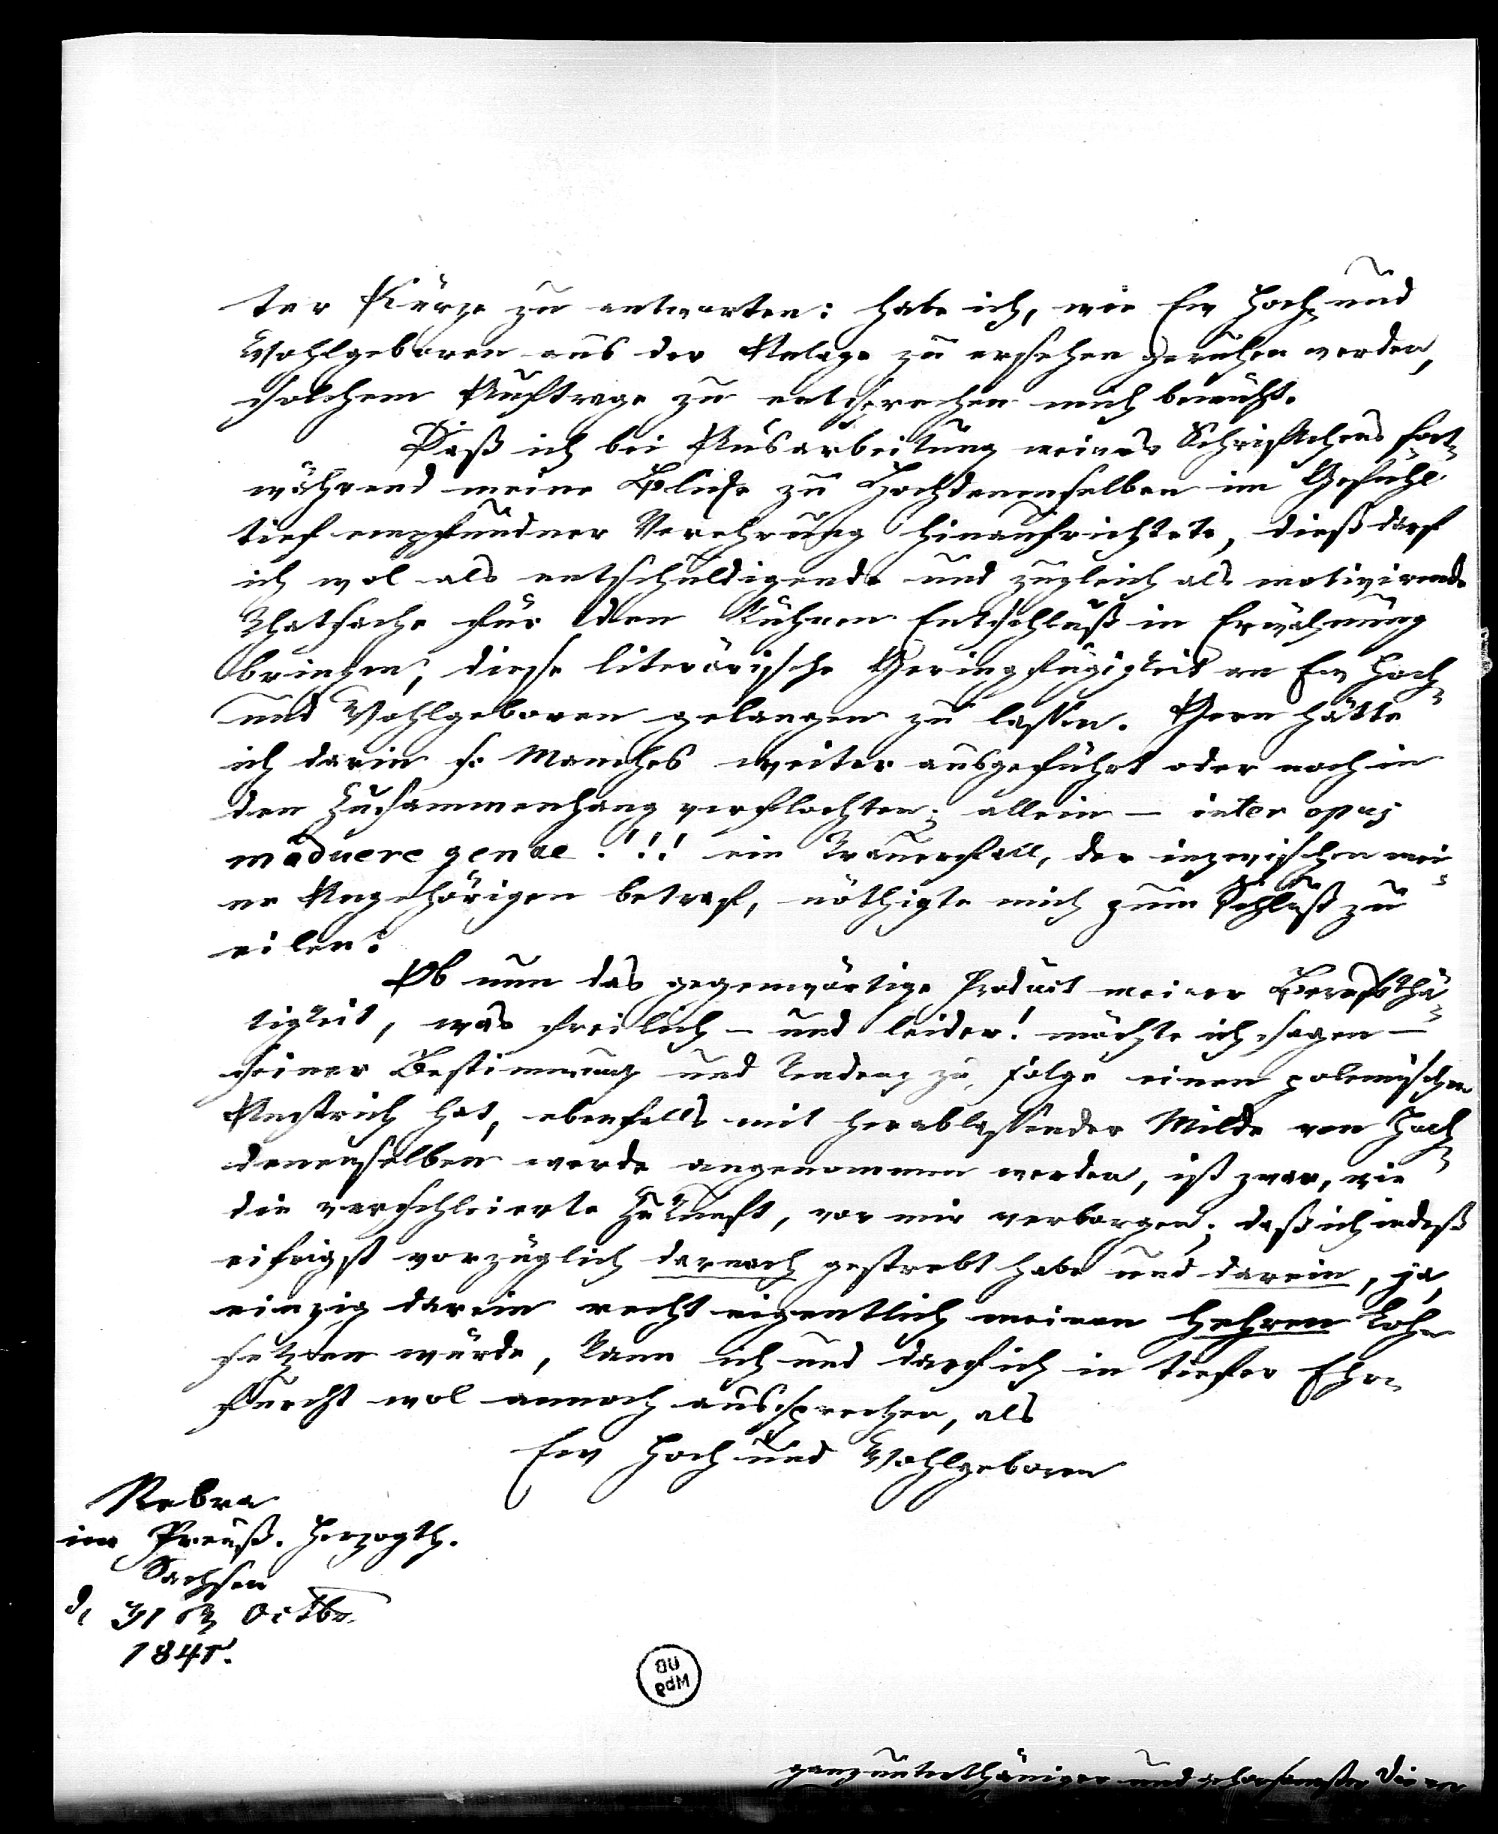 ter Kürze zu antworten: habe ich, wie Ew Hoch und
Wohlgeboren aus der Anlage zu ersehen geruhen werden,
solchem Auftrage zu entsprechen mich bemüht.
Daß ich bei Ausarbeitung meines Schriftchens fort-
während meine Blicke zu Hochdenenselben im Gefühl
tief empfundner Verehrung hinaufrichtete, dieß darf
ich wol als entschuldigende und zugleich als motivirende
Thatsache für den kühnen Entschluß in Erwähnung
bringen, diese literärische Geringfügigkeit an Ew Hoch-
und Wohlgeboren gelangen zu lassen. Gern hätte
ich darin so Manches weiter ausgeführt oder noch in
den Zusammenhang verflochten; allein – inter opus
maduere genae!!! ein Trauerfall, der inzwischen mei-
ne Angehörigen betraf, nöthigte mich zum Schluß zu
eilen.
Ob nun das gegenwärtige Product meiner Berufsthä-
tigkeit, was freilich – und leider! möchte ich sagen –
seiner Bestimmung und Tendenz zu folge einen polemischen
Anstrich hat, ebenfalls mit herablassender Milde von Hoch-
denenselben werde angenommen werden, ist zwar, wie
die verschleierte Zukunft, vor mir verborgen; daß ich indeß
eifrigst vorzüglich darnach gestrebt habe und darein, ja,
einzig darein recht eigentlich meinen hehren Lohn
setzen würde, kann ich und darf ich in tiefer Ehr-
furcht wol annoch aussprechen, als
Ew Hoch und Wohlgeboren
Nebra
im Preuß. Herzogth.
Sachsen
d. 31 Octbr.
1841.
UB
Mbg
ganz unterthäniger und gehorsamster Diener